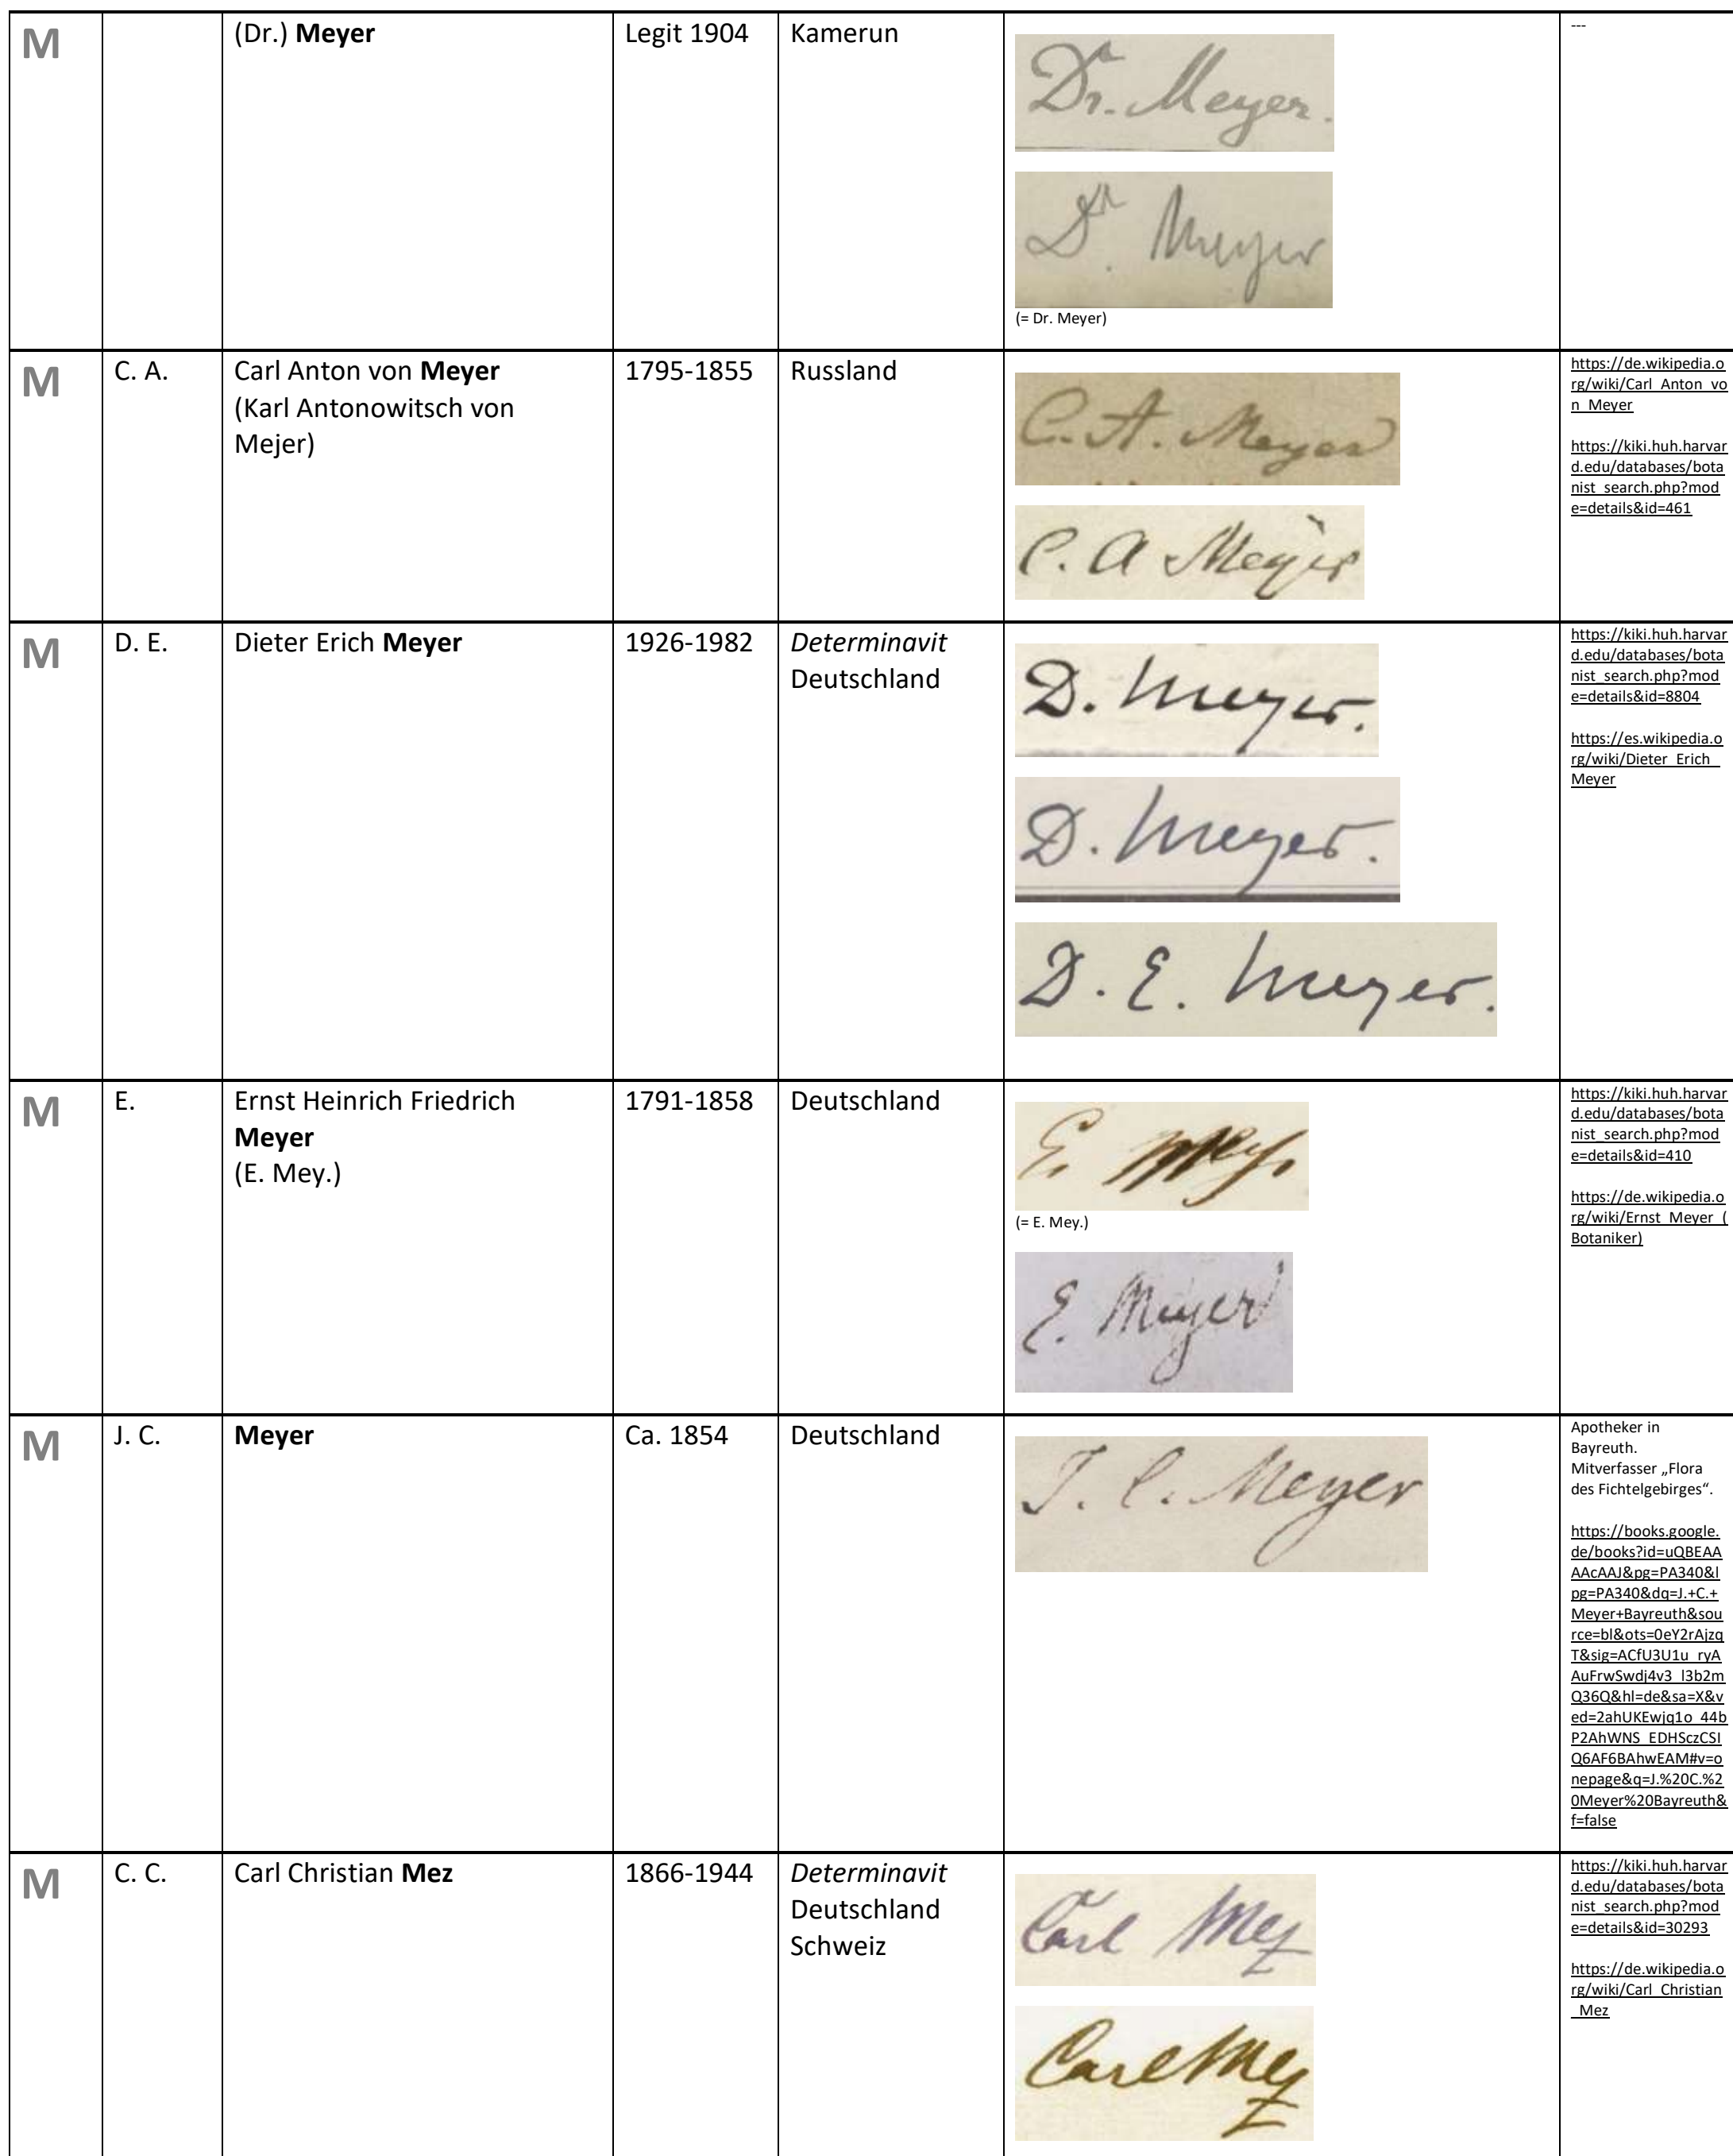 M
(Dr.) Meyer
Legit 1904
Kamerun
Dr. Meyer.
Dr. Meyer
(= Dr. Meyer)
---
M
C. A.
Carl Anton von Meyer
(Karl Antonowitsch von
Mejer)
1795-1855
Russland
C. A. Meyer
C. A Meyer
https://de.wikipedia.o
rg/wiki/Carl_Anton_vo
n_Meyer
https://kiki.huh.harvar
d.edu/databases/bota
nist_search.php?mod
e=details&id=461
M
D. E.
Dieter Erich Meyer
1926-1982
Determinavit
Deutschland
D. Meyer.
D. Meyer.
D. E. Meyer.
https://kiki.huh.harvar
d.edu/databases/bota
nist_search.php?mod
e=details&id=8804
https://es.wikipedia.o
rg/wiki/Dieter_Erich_
Meyer
M
E.
Ernst Heinrich Friedrich
Meyer
(E. Mey.)
1791-1858
Deutschland
E. Mey.
(= E. Mey.)
E. Meyer
https://kiki.huh.harvar
d.edu/databases/bota
nist_search.php?mod
e=details&id=410
https://de.wikipedia.o
rg/wiki/Ernst_Meyer_(
Botaniker)
M
J. C.
Meyer
Ca. 1854
Deutschland
J. C. Meyer
Apotheker in
Bayreuth.
Mitverfasser „Flora
des Fichtelgebirges“.
https://books.google.
de/books?id=uQBEAA
AAcAAJ&pg=PA340&l
pg=PA340&dq=J.+C.+
Meyer+Bayreuth&sou
rce=bl&ots=0eY2rAjzq
T&sig=ACfU3U1u_ryA
AuFrwSwdj4v3_l3b2m
Q36Q&hl=de&sa=X&v
ed=2ahUKEwjq1o_44b
P2AhWNS_EDHSczCSI
Q6AF6BAhwEAM#v=o
nepage&q=J.%20C.%2
0Meyer%20Bayreuth&
f=false
M
C. C.
Carl Christian Mez
1866-1944
Determinavit
Deutschland
Schweiz
Carl Mez
Carl Mez
https://kiki.huh.harvar
d.edu/databases/bota
nist_search.php?mod
e=details&id=30293
https://de.wikipedia.o
rg/wiki/Carl_Christian
_Mez